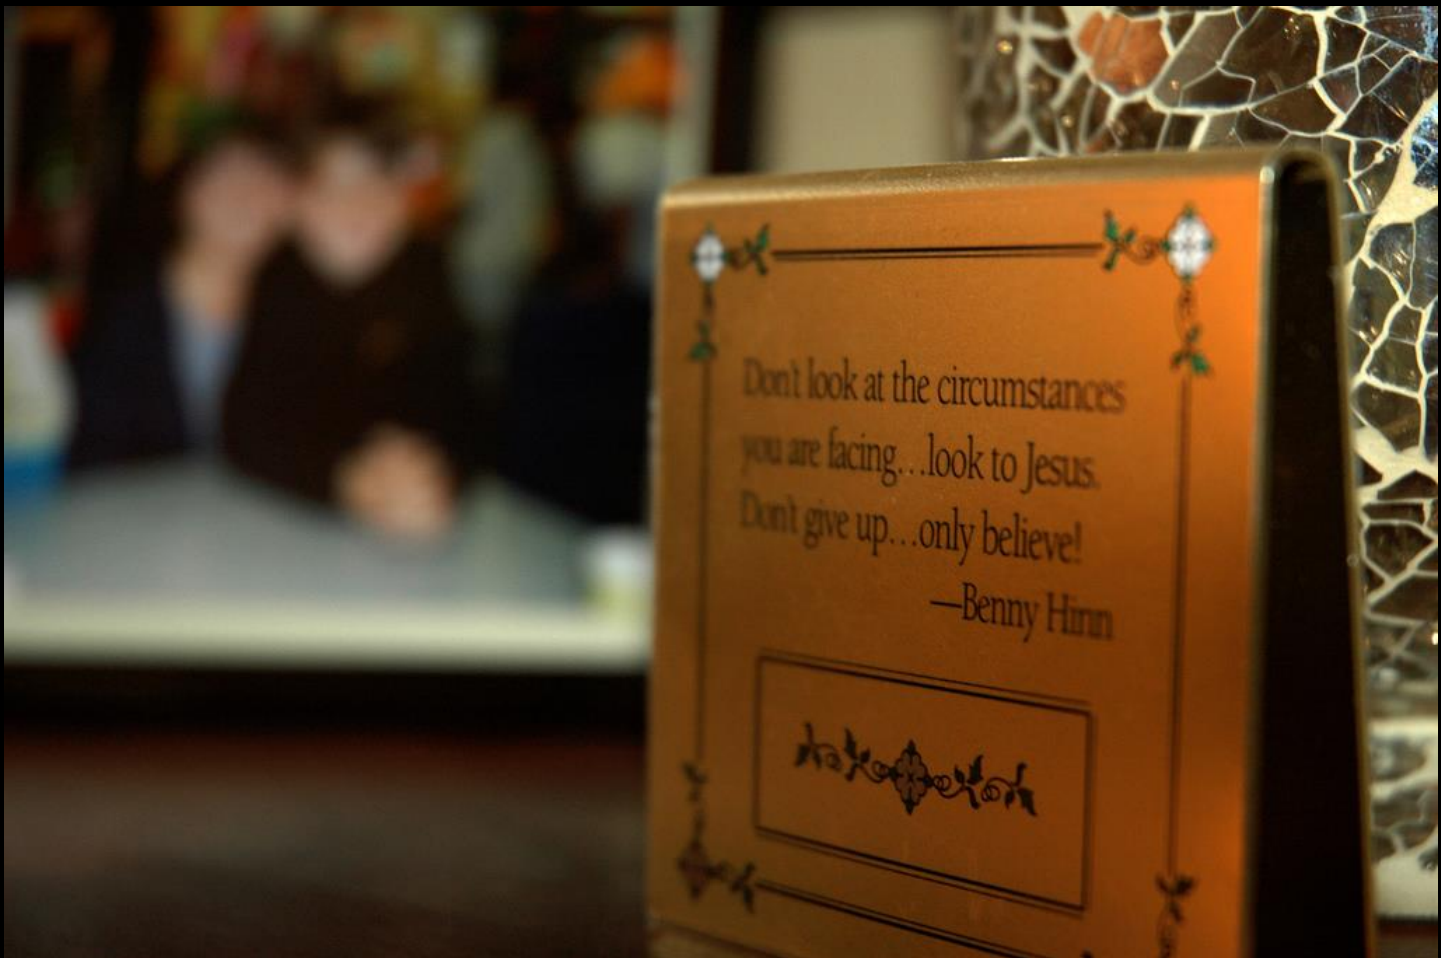 Don't look at the circumstances
you are facing...look to Jesus.
Don't give up...only believe!
—Benny Hinn